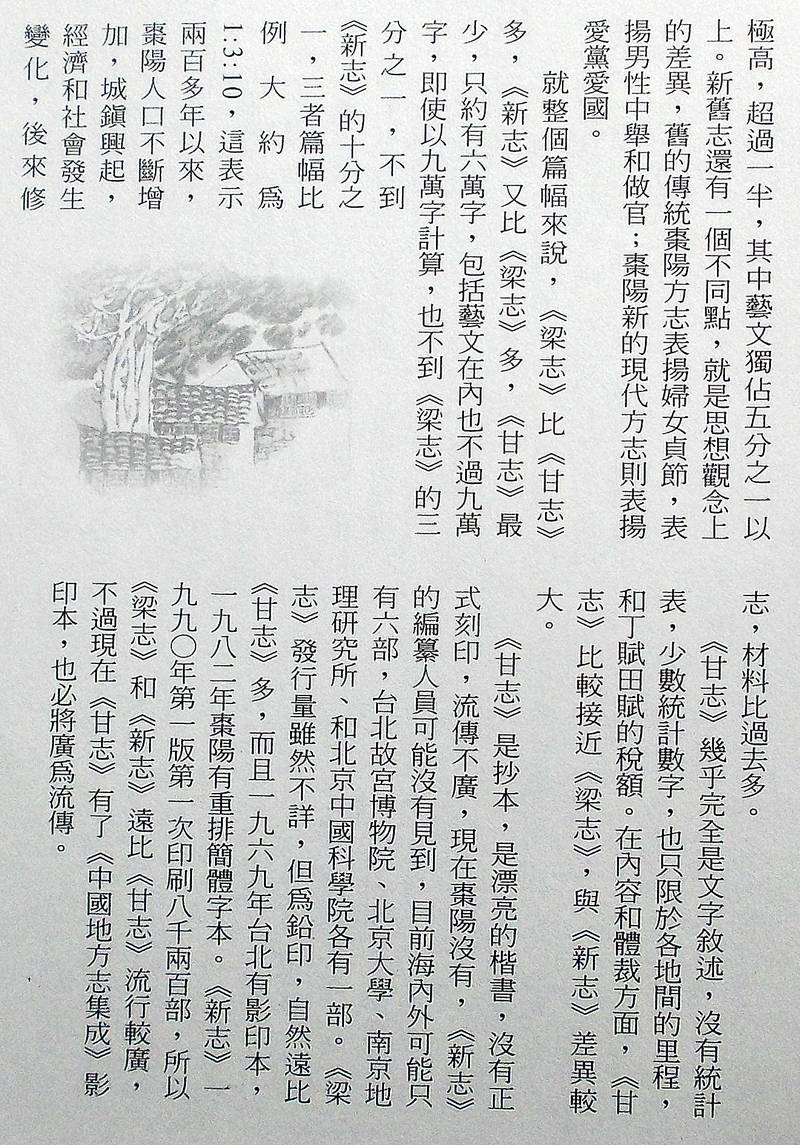 極高，超過一半，其中藝文獨佔五分之一以
上。新舊志還有一個不同點，就是思想觀念上
的差異，舊的傳統棗陽方志表揚婦女貞節，表
揚男性中舉和做官；棗陽新的現代方志則表揚
愛黨愛國。
就整個篇幅來說，《梁志》比《甘志》
多，《新志》又比《梁志》多，《甘志》最
少，只約有六萬字，包括藝文在內也不過九萬
字，即使以九萬字計算，也不到《梁志》的三
分之一，不到
《新志》的十分之
一，三者篇幅比
例大約爲
1:3:10，這表示
兩百多年以來，
棗陽人口不斷增
加，城鎮興起，
經濟和社會發生
變化，後來修
志，材料比過去多。
《甘志》幾乎完全是文字敘述，沒有統計
表，少數統計數字，也只限於各地間的里程，
和丁賦田賦的稅額。在內容和體裁方面，《甘
志》比較接近《梁志》，與《新志》差異較
大。
《甘志》是抄本，是漂亮的楷書，沒有正
式刻印，流傳不廣，現在棗陽沒有，《新志》
的編纂人員可能沒有見到，目前海內外可能只
有六部，台北故宮博物院、北京大學、南京地
理研究所、和北京中國科學院各有一部。《梁
志》發行量雖然不詳，但爲鉛印，自然遠比
《甘志》多，而且一九六九年台北有影印本，
一九八二年棗陽有重排簡體字本。《新志》一
九九〇年第一版第一次印刷八千兩百部，所以
《梁志》和《新志》遠比《甘志》流行較廣，
不過現在《甘志》有了《中國地方志集成》影
印本，也必將廣爲流傳。